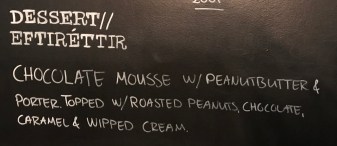 DESSERT//
EFTIRÉTTIR
CHOCOLATE MOUSSE W/PEANUTBUTTER &
PORTER. TOPPED W/ROASTED PEANUTS, CHOCOLATE,
CARAMEL & WIPPED CREAM.